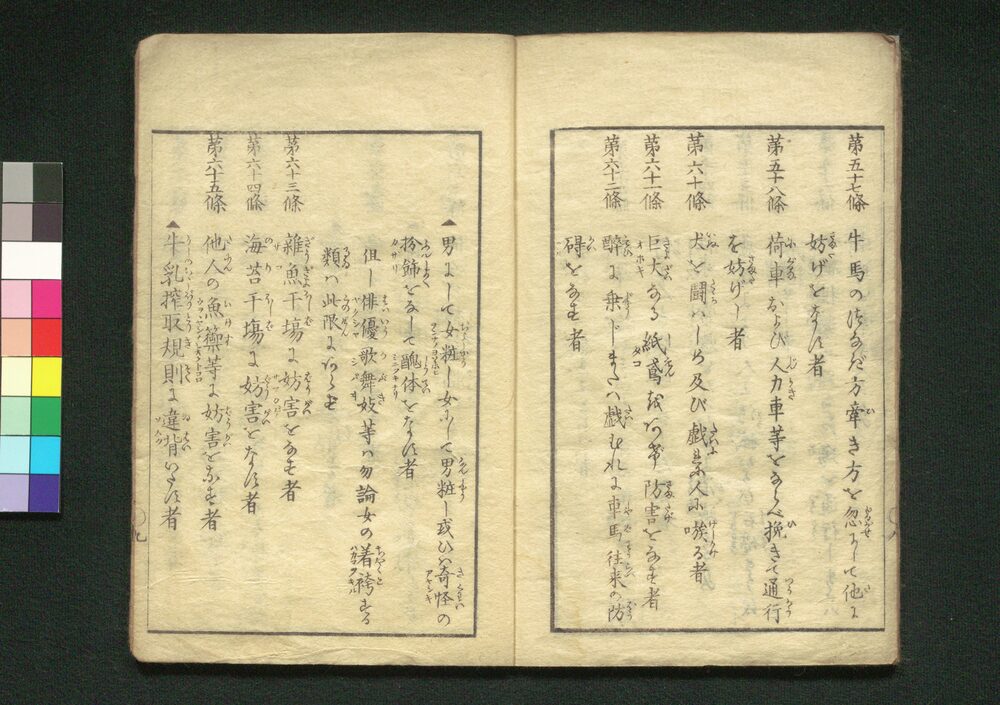 第五十七條
牛馬のつなぎ方牽き方を忽かせにして他に
妨げをなす者
第五十八條
荷車および人力車等をならべ挽きて通行
を妨げし者
第六十條
犬を闘ハしめ及び戯に人に嗾する者
第六十一條
巨大なる紙鳶をあげ防害をなす者
第六十二條
酔に乗じまたハ戯むれに車馬往来の防
碍をなす者
男にして女粧し女にして男粧し或ひハ奇怪の
扮飾をなして醜体をなす者
但し俳優歌舞妓等ハ勿論女の着袴する
類ハ此限にあらず
第六十三條
雑魚干塲に妨害をなす者
第六十四條
海苔干塲に妨害をなす者
第六十五條
他人の魚籞等に妨害をなす者
牛乳搾取規則に違背いたす者